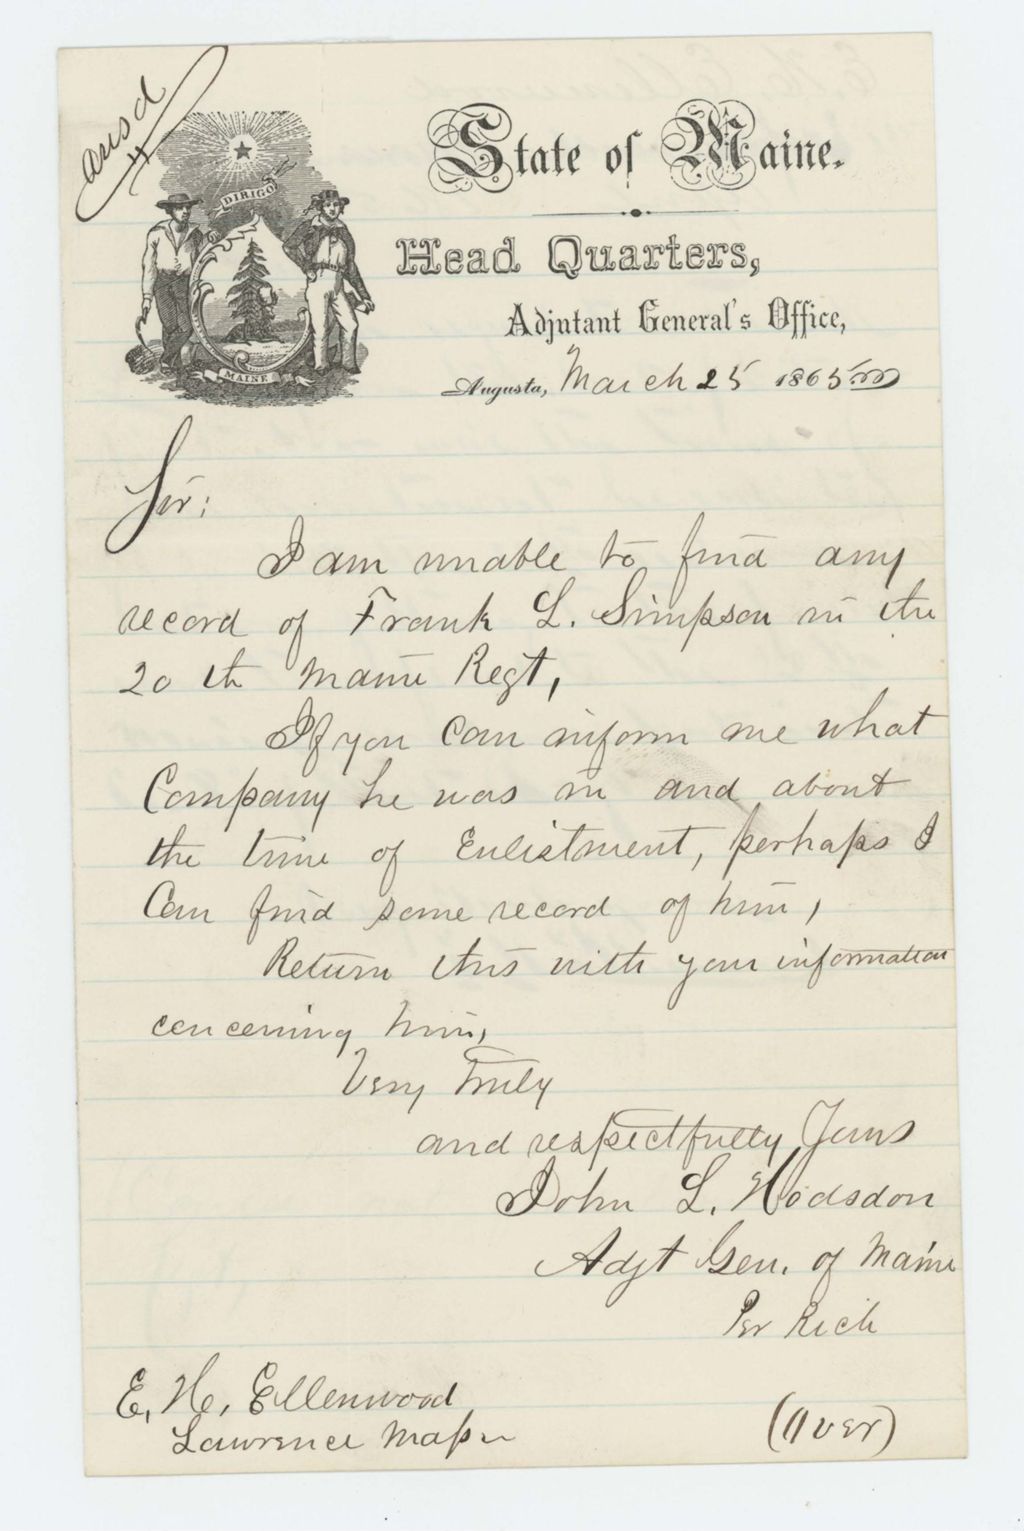 ansd
DIRIGO
MAINE
State of Maine.
Head Quarters,
Adjutant General's Office,
Augusta, March 25 1865
Sir:
I am unable to find any
record of Frank L. Simpson in the
20 th Maine Regt,
If you can inform me what
Company he was in and about
the time of Enlistment, perhaps I
Can find some record of him,
Return this with your information
concerning him,
Very Truly
and respectfully Yours
John L. Hodsdon
Adjt Gen. of Maine
Per Rich
E. H. Ellenwood
Lawrence Mass
(Over)